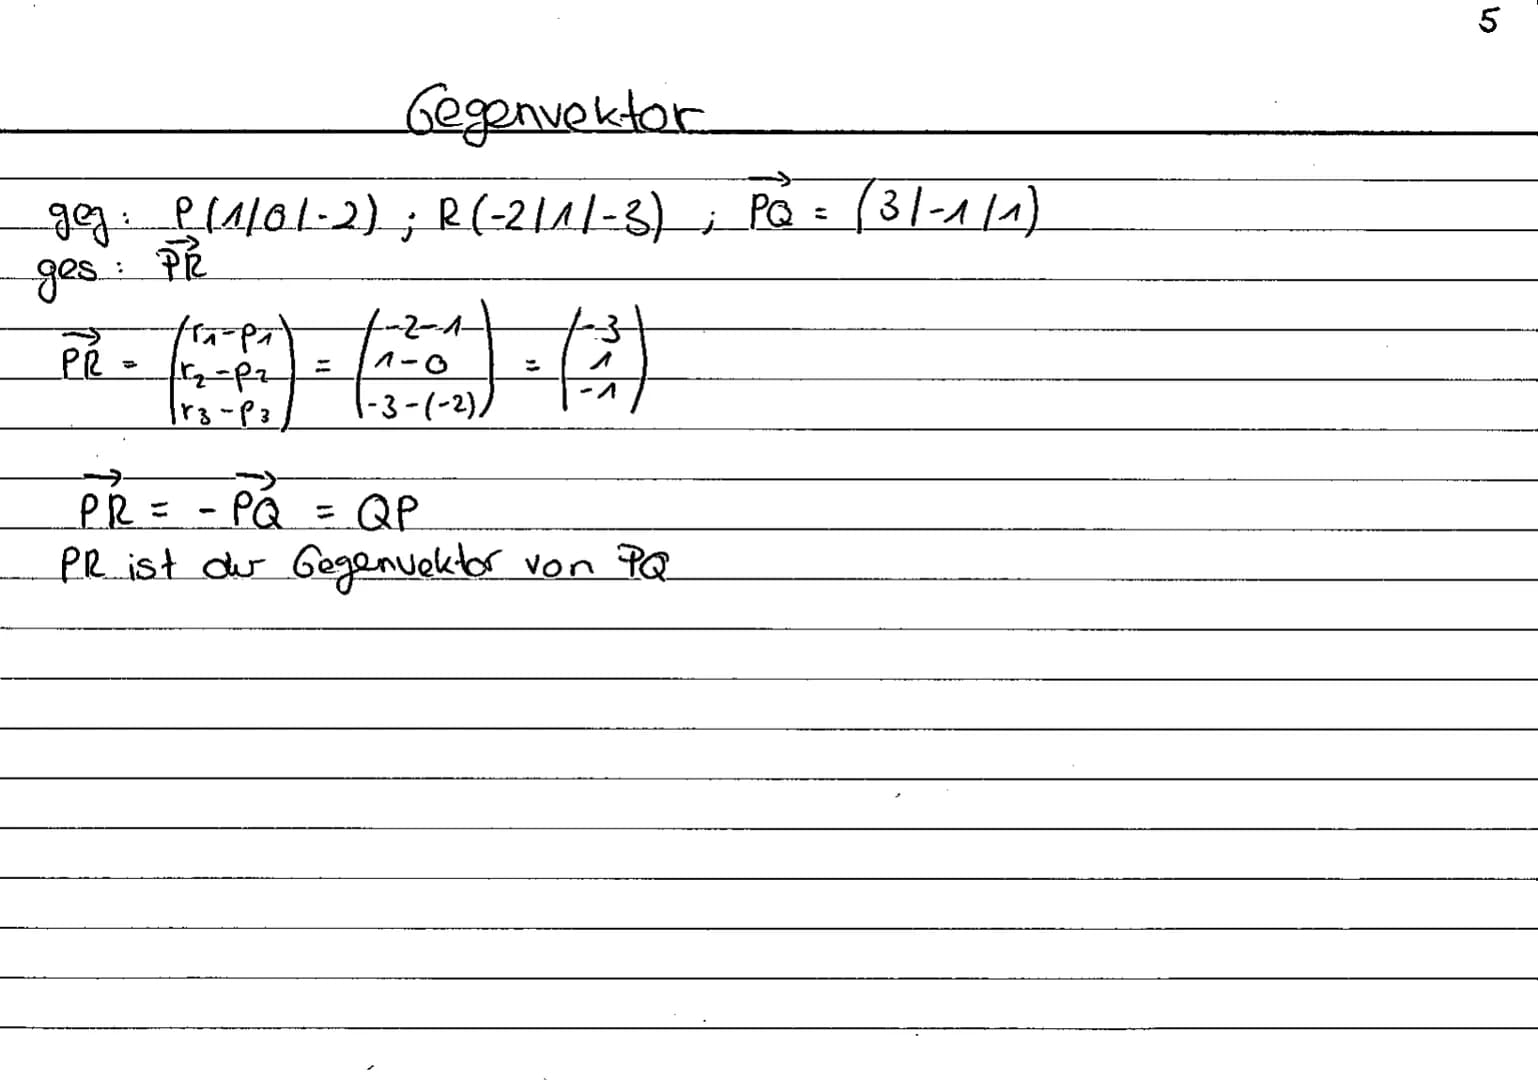 5
Gegenvektor
geg: P(1/0/-2) ; R(-2/1/-3) ; \overrightarrow{PQ} = (3/-1/1)
ges: \overrightarrow{PR}
\overrightarrow{PR} = \begin{pmatrix} r_1-p_1 \\ r_2-p_2 \\ r_3-p_3 \end{pmatrix} = \begin{pmatrix} -2-1 \\ 1-0 \\ -3-(-2) \end{pmatrix} = \begin{pmatrix} -3 \\ 1 \\ -1 \end{pmatrix}
\overrightarrow{PR} = -\overrightarrow{PQ} = QP
PR ist der Gegenvektor von PQ